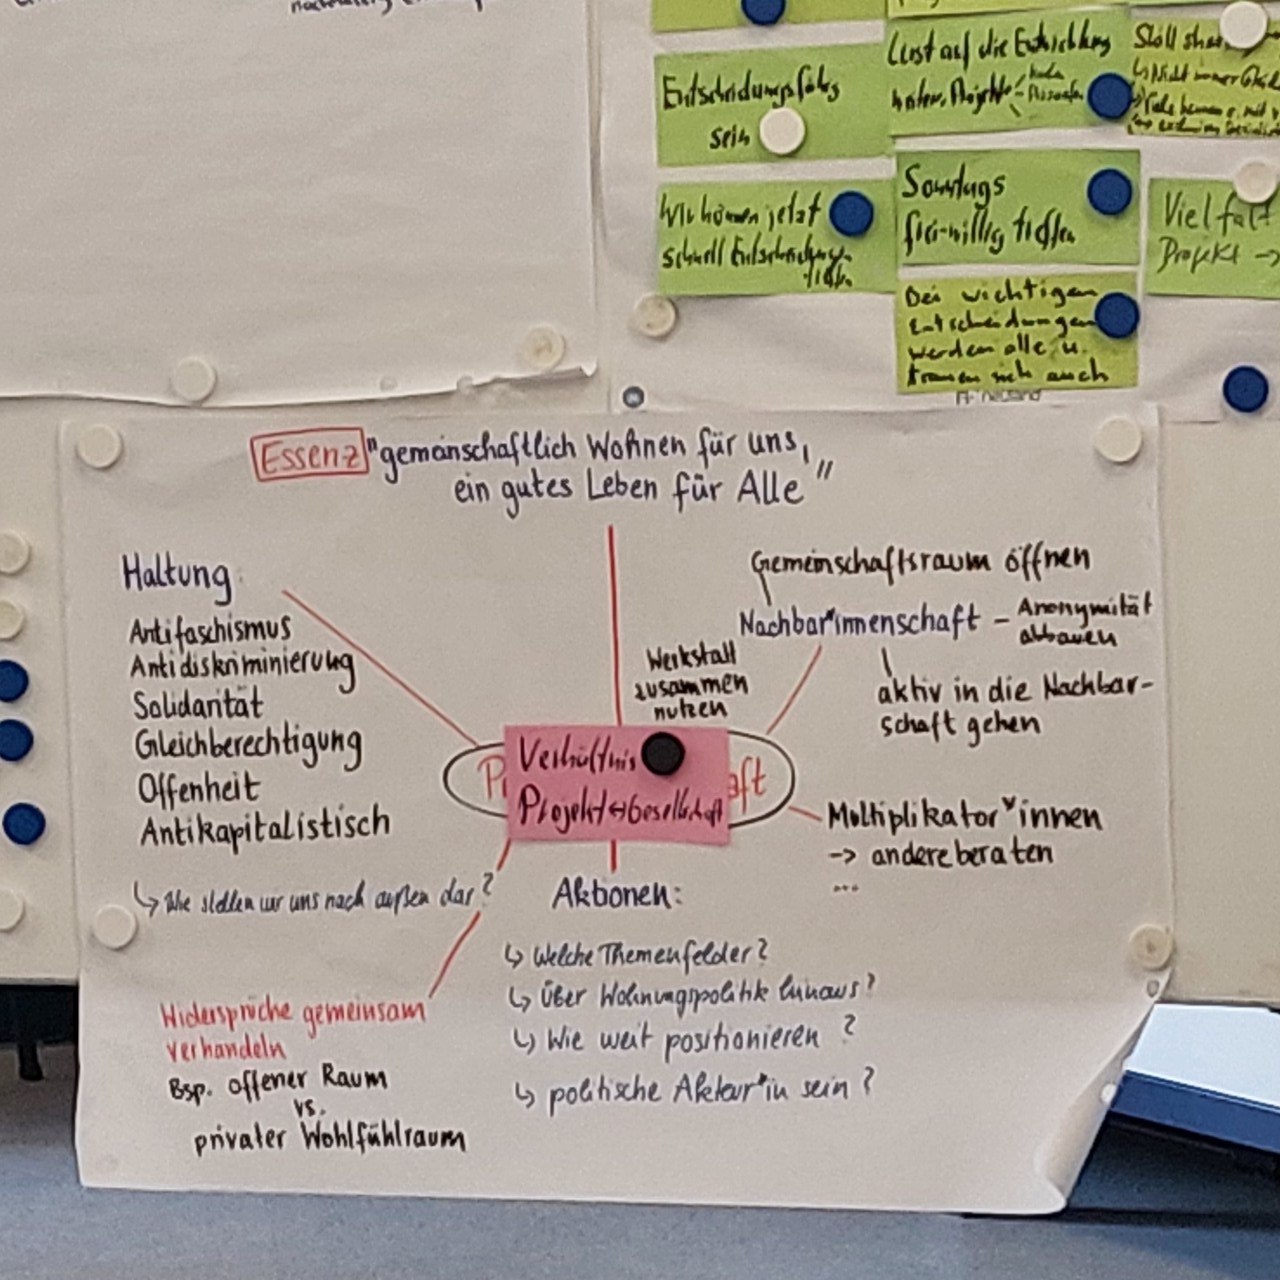 Entscheidungsfähig
sein
Lust auf die Entwicklung
Wir können jetzt
schnell Entscheidungen
Sonntags
freiwillig treffen
Vielfalt
Projekt ->
Bei wichtigen
Entscheidungen
werden alle
auch
Essenz "gemeinschaftlich Wohnen für uns,
ein gutes Leben für Alle"
Haltung:
Antifaschismus
Antidiskriminierung
Solidarität
Gleichberechtigung
Offenheit
Antikapitalistisch
↳ Wie stellen wir uns nach außen dar?
Gemeinschaftsraum öffnen
Nachbar*innenschaft - Anonymität
abbauen
aktiv in die Nachbar-
schaft gehen
Werkstatt
zusammen
nutzen
Verhältnis
Projekt ↔ Gesellschaft
Multiplikator*innen
-> andere beraten
...
Aktionen:
↳ Welche Themenfelder?
↳ Über Wohnungspolitik hinaus?
↳ Wie weit positionieren?
↳ politische Akteur*in sein?
Widersprüche gemeinsam
verhandeln
Bsp. offener Raum
vs.
privater Wohlfühlraum